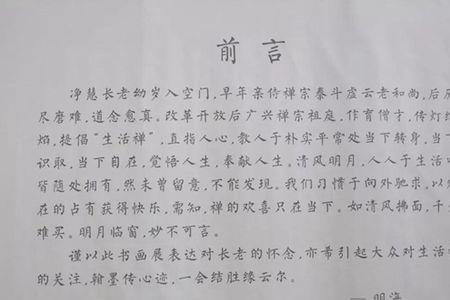 前言
净慧长老幼岁入空门,早年亲侍禅宗泰斗虚云老和尚,后
尽磨难,道念愈真。改革开放后广兴禅宗祖庭,作育僧才,传灯
焰,提倡“生活禅”,直指人心,教人于朴实平常处当下转身,当
识取,当下自在,觉悟人生,奉献人生。清风明月,人人于生活
皆随处拥有,然未曾留意,不能发现。我们习惯于向外驰求,以
在的占有获得快乐,需知,禅的欢喜只在当下。如清风拂面,千
难买。明月临窗,妙不可言。
谨以此书画展表达对长老的怀念,亦希引起大众对生活
的关注,翰墨传心迹,一会结胜缘云尔。
—明海